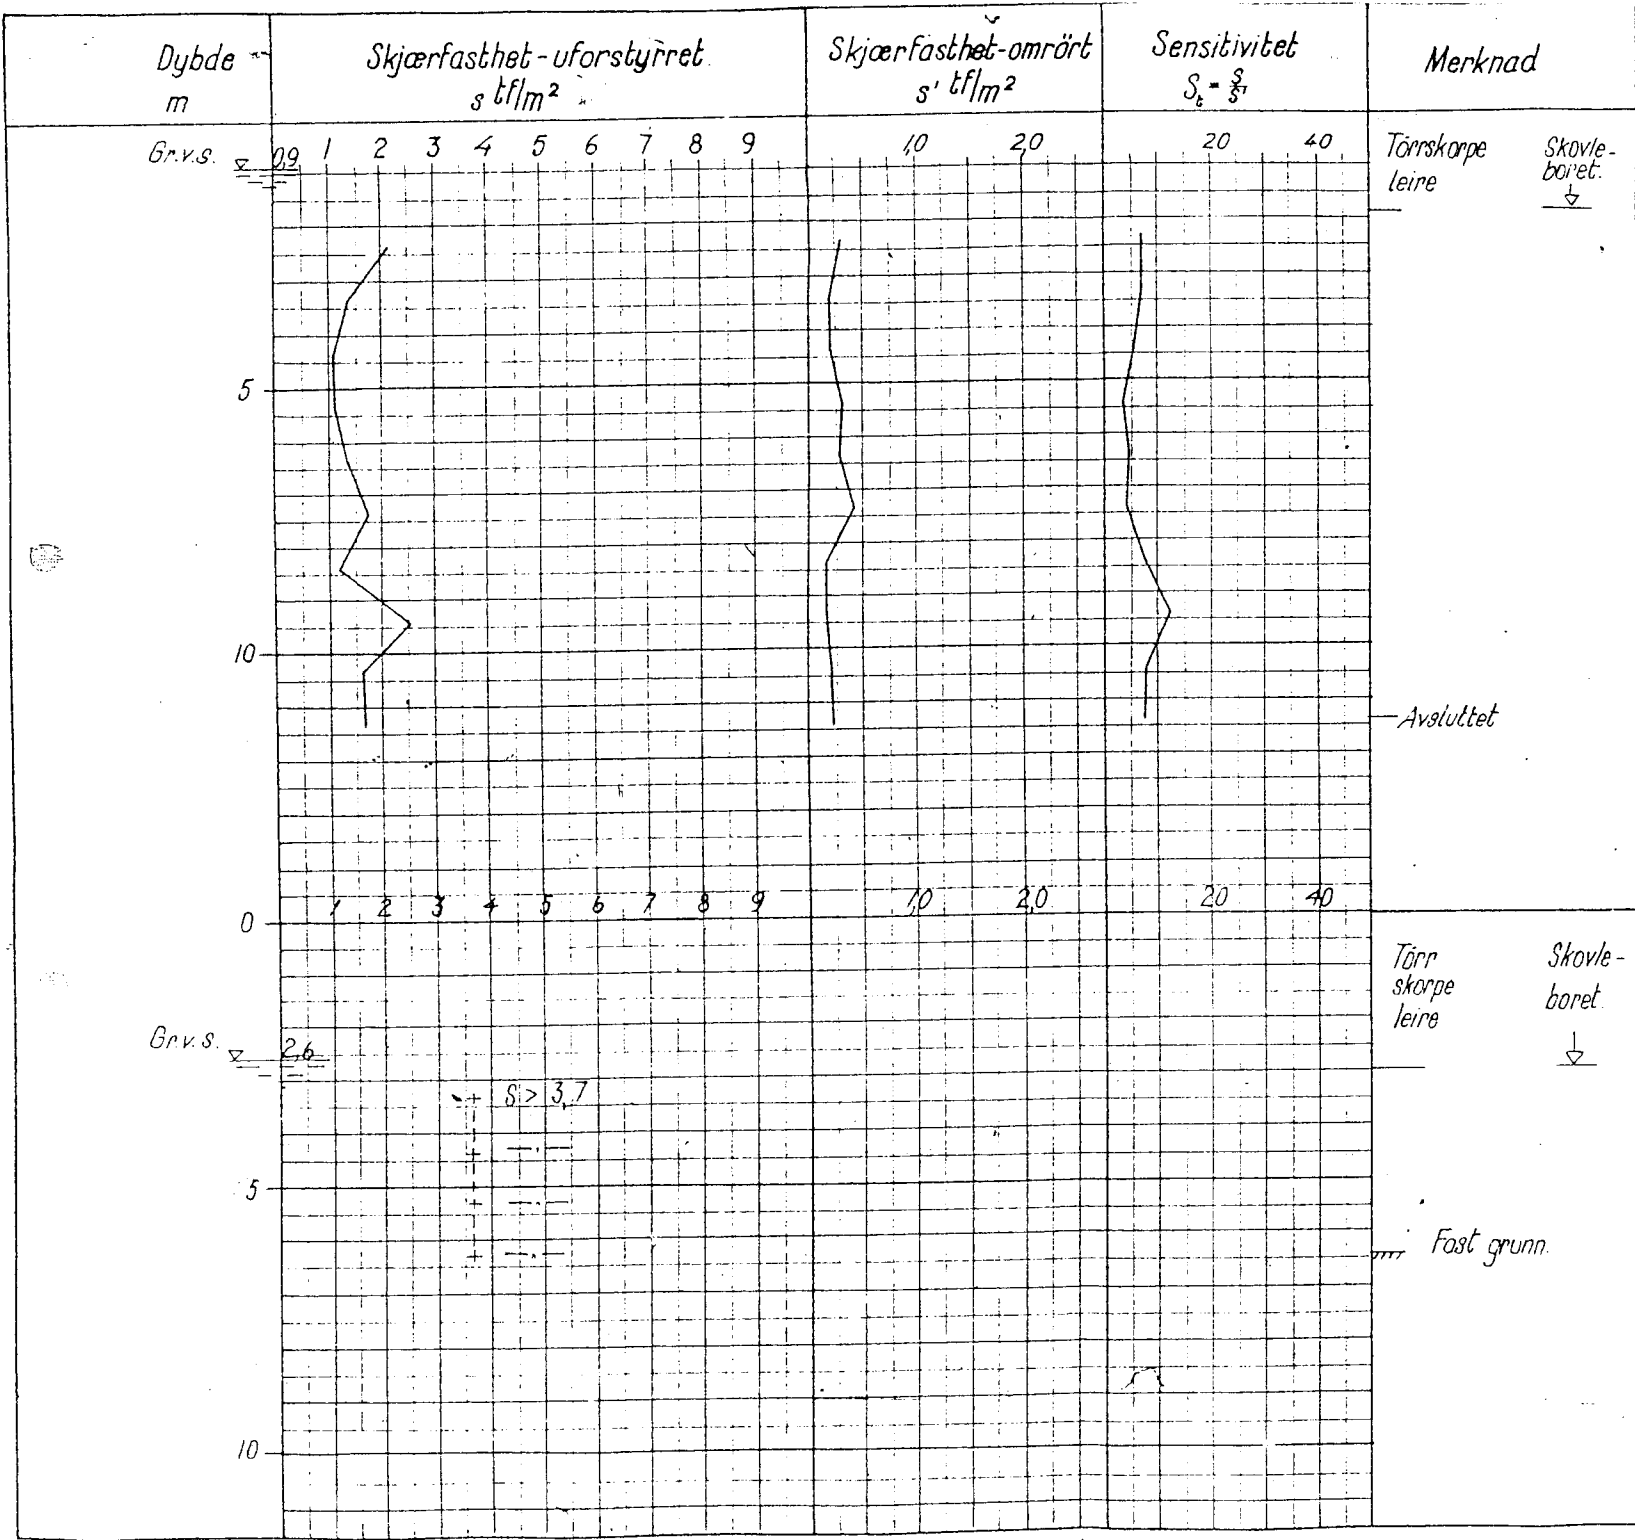 Dybde
m
Skjærfasthet - uforstyrret
s tf/m²
Skjærfasthet-omrört
s' tf/m²
Sensitivitet
Sₜ = s/s'
Merknad
Gr.v.s. 0,9
1 2 3 4 5 6 7 8 9
1,0 2,0
20 40
Törrskorpe
leire
Skovle-
boret.
5
10
Avsluttet
0
1 2 3 4 5 6 7 8 9
1,0 2,0
20 40
Törr
skorpe
leire
Skovle-
boret.
Gr.v.s. 2,6
S > 3,7
5
Fast grunn.
10